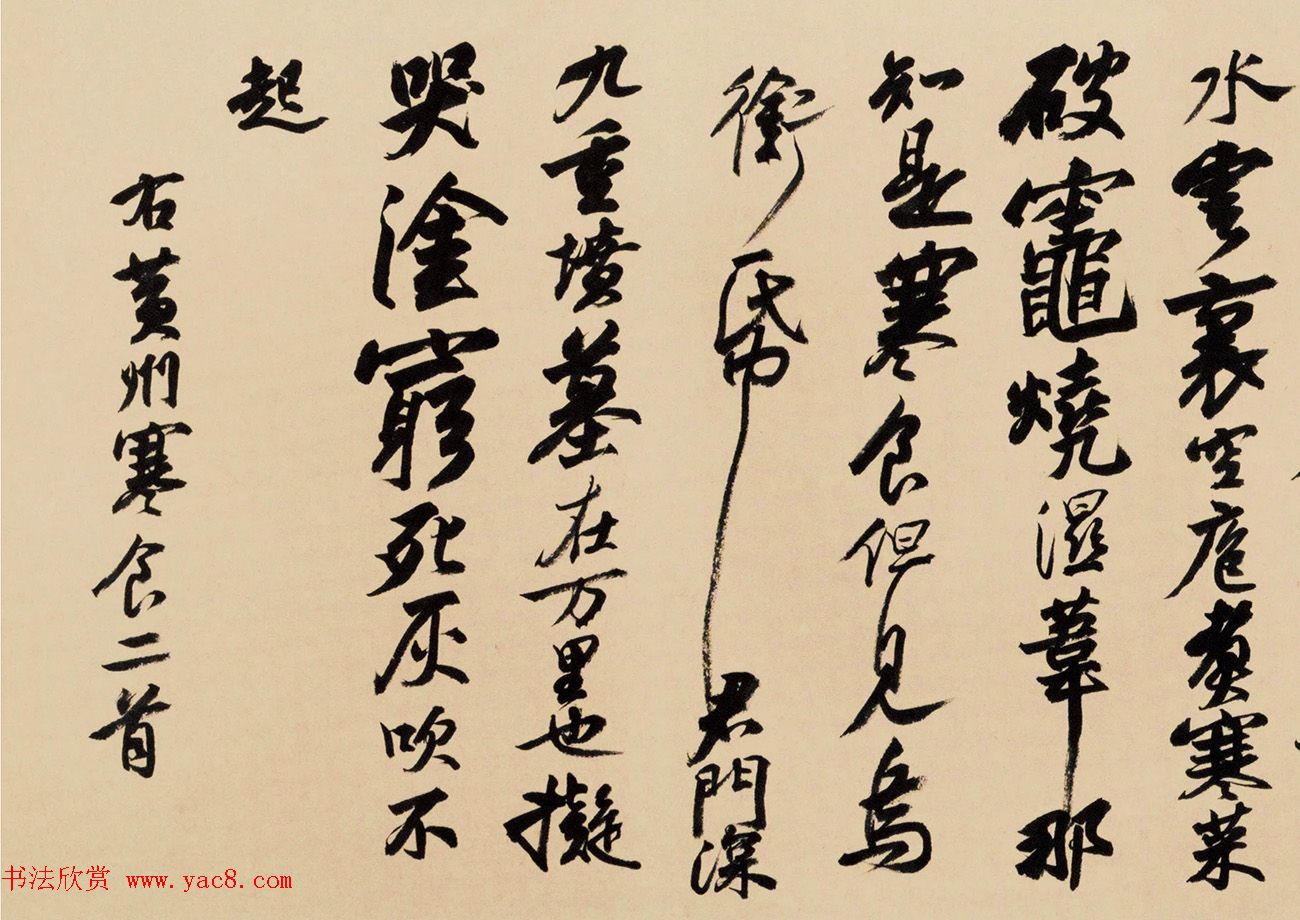 水雲裹空庖煑寒菜
破竈燒濕葦那
知是寒食但見烏
銜帋君門深
九重墳墓在万里也擬
哭塗窮死灰吹不
起
右黄州寒食二首
书法欣赏 www.yac8.com